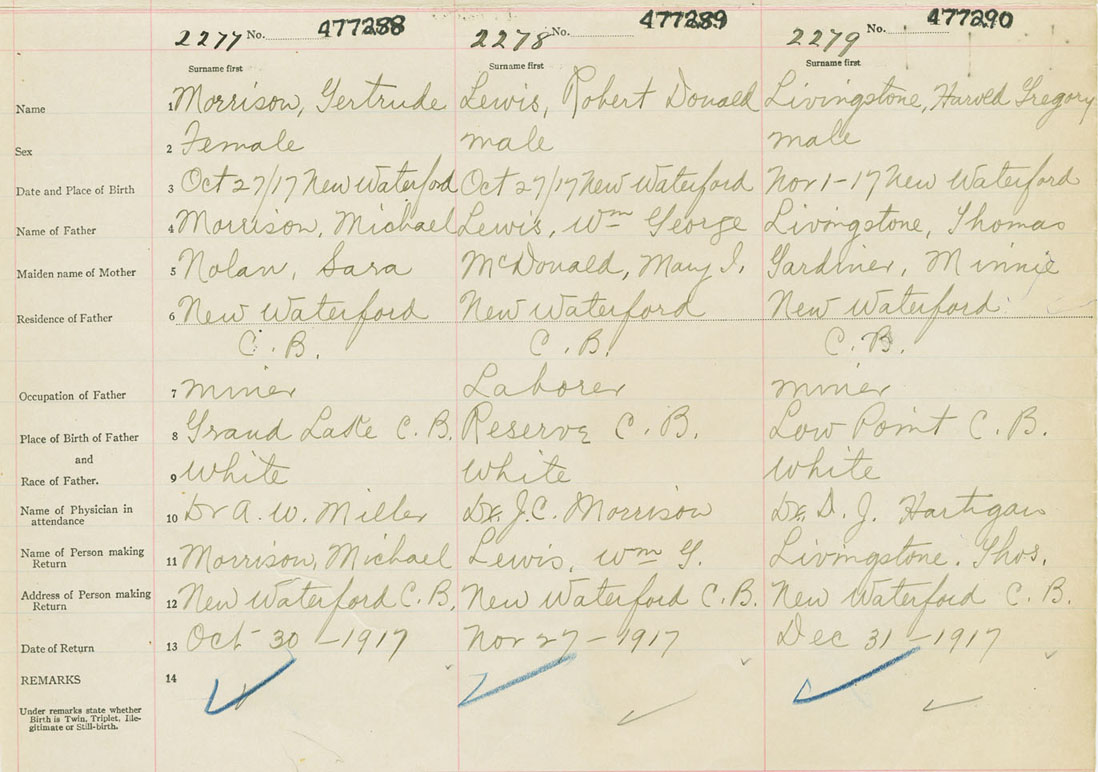 2277 No. 477288 2278 No. 477289 2279 No. 477290
Surname first Surname first Surname first
Name 1 Morrison, Gertrude Lewis, Robert Donald Livingstone, Harold Gregory
Sex 2 Female male male
Date and Place of Birth 3 Oct 27/17 New Waterford Oct 27/17 New Waterford Nov 1-17 New Waterford
Name of Father 4 Morrison, Michael Lewis, Wm George Livingstone, Thomas
Maiden name of Mother 5 Nolan, Sara McDonald, Mary J. Gardiner, Minnie
Residence of Father 6 New Waterford New Waterford New Waterford
C. B. C. B. C. B.
Occupation of Father 7 miner Laborer miner
Place of Birth of Father 8 Grand Lake C. B. Reserve C. B. Low Point C. B.
and
Race of Father. 9 White White White
Name of Physician in
attendance 10 Dr A. W. Miller Dr. J. C. Morrison Dr. D. J. Hartigan
Name of Person making
Return 11 Morrison, Michael Lewis, Wm G. Livingstone. Thos.
Address of Person making
Return 12 New Waterford C. B. New Waterford C. B. New Waterford C. B.
Date of Return 13 Oct 30 - 1917 Nov 27 - 1917 Dec 31 - 1917
REMARKS 14
Under remarks state whether
Birth is Twin, Triplet, Ille-
gitimate or Still-birth.